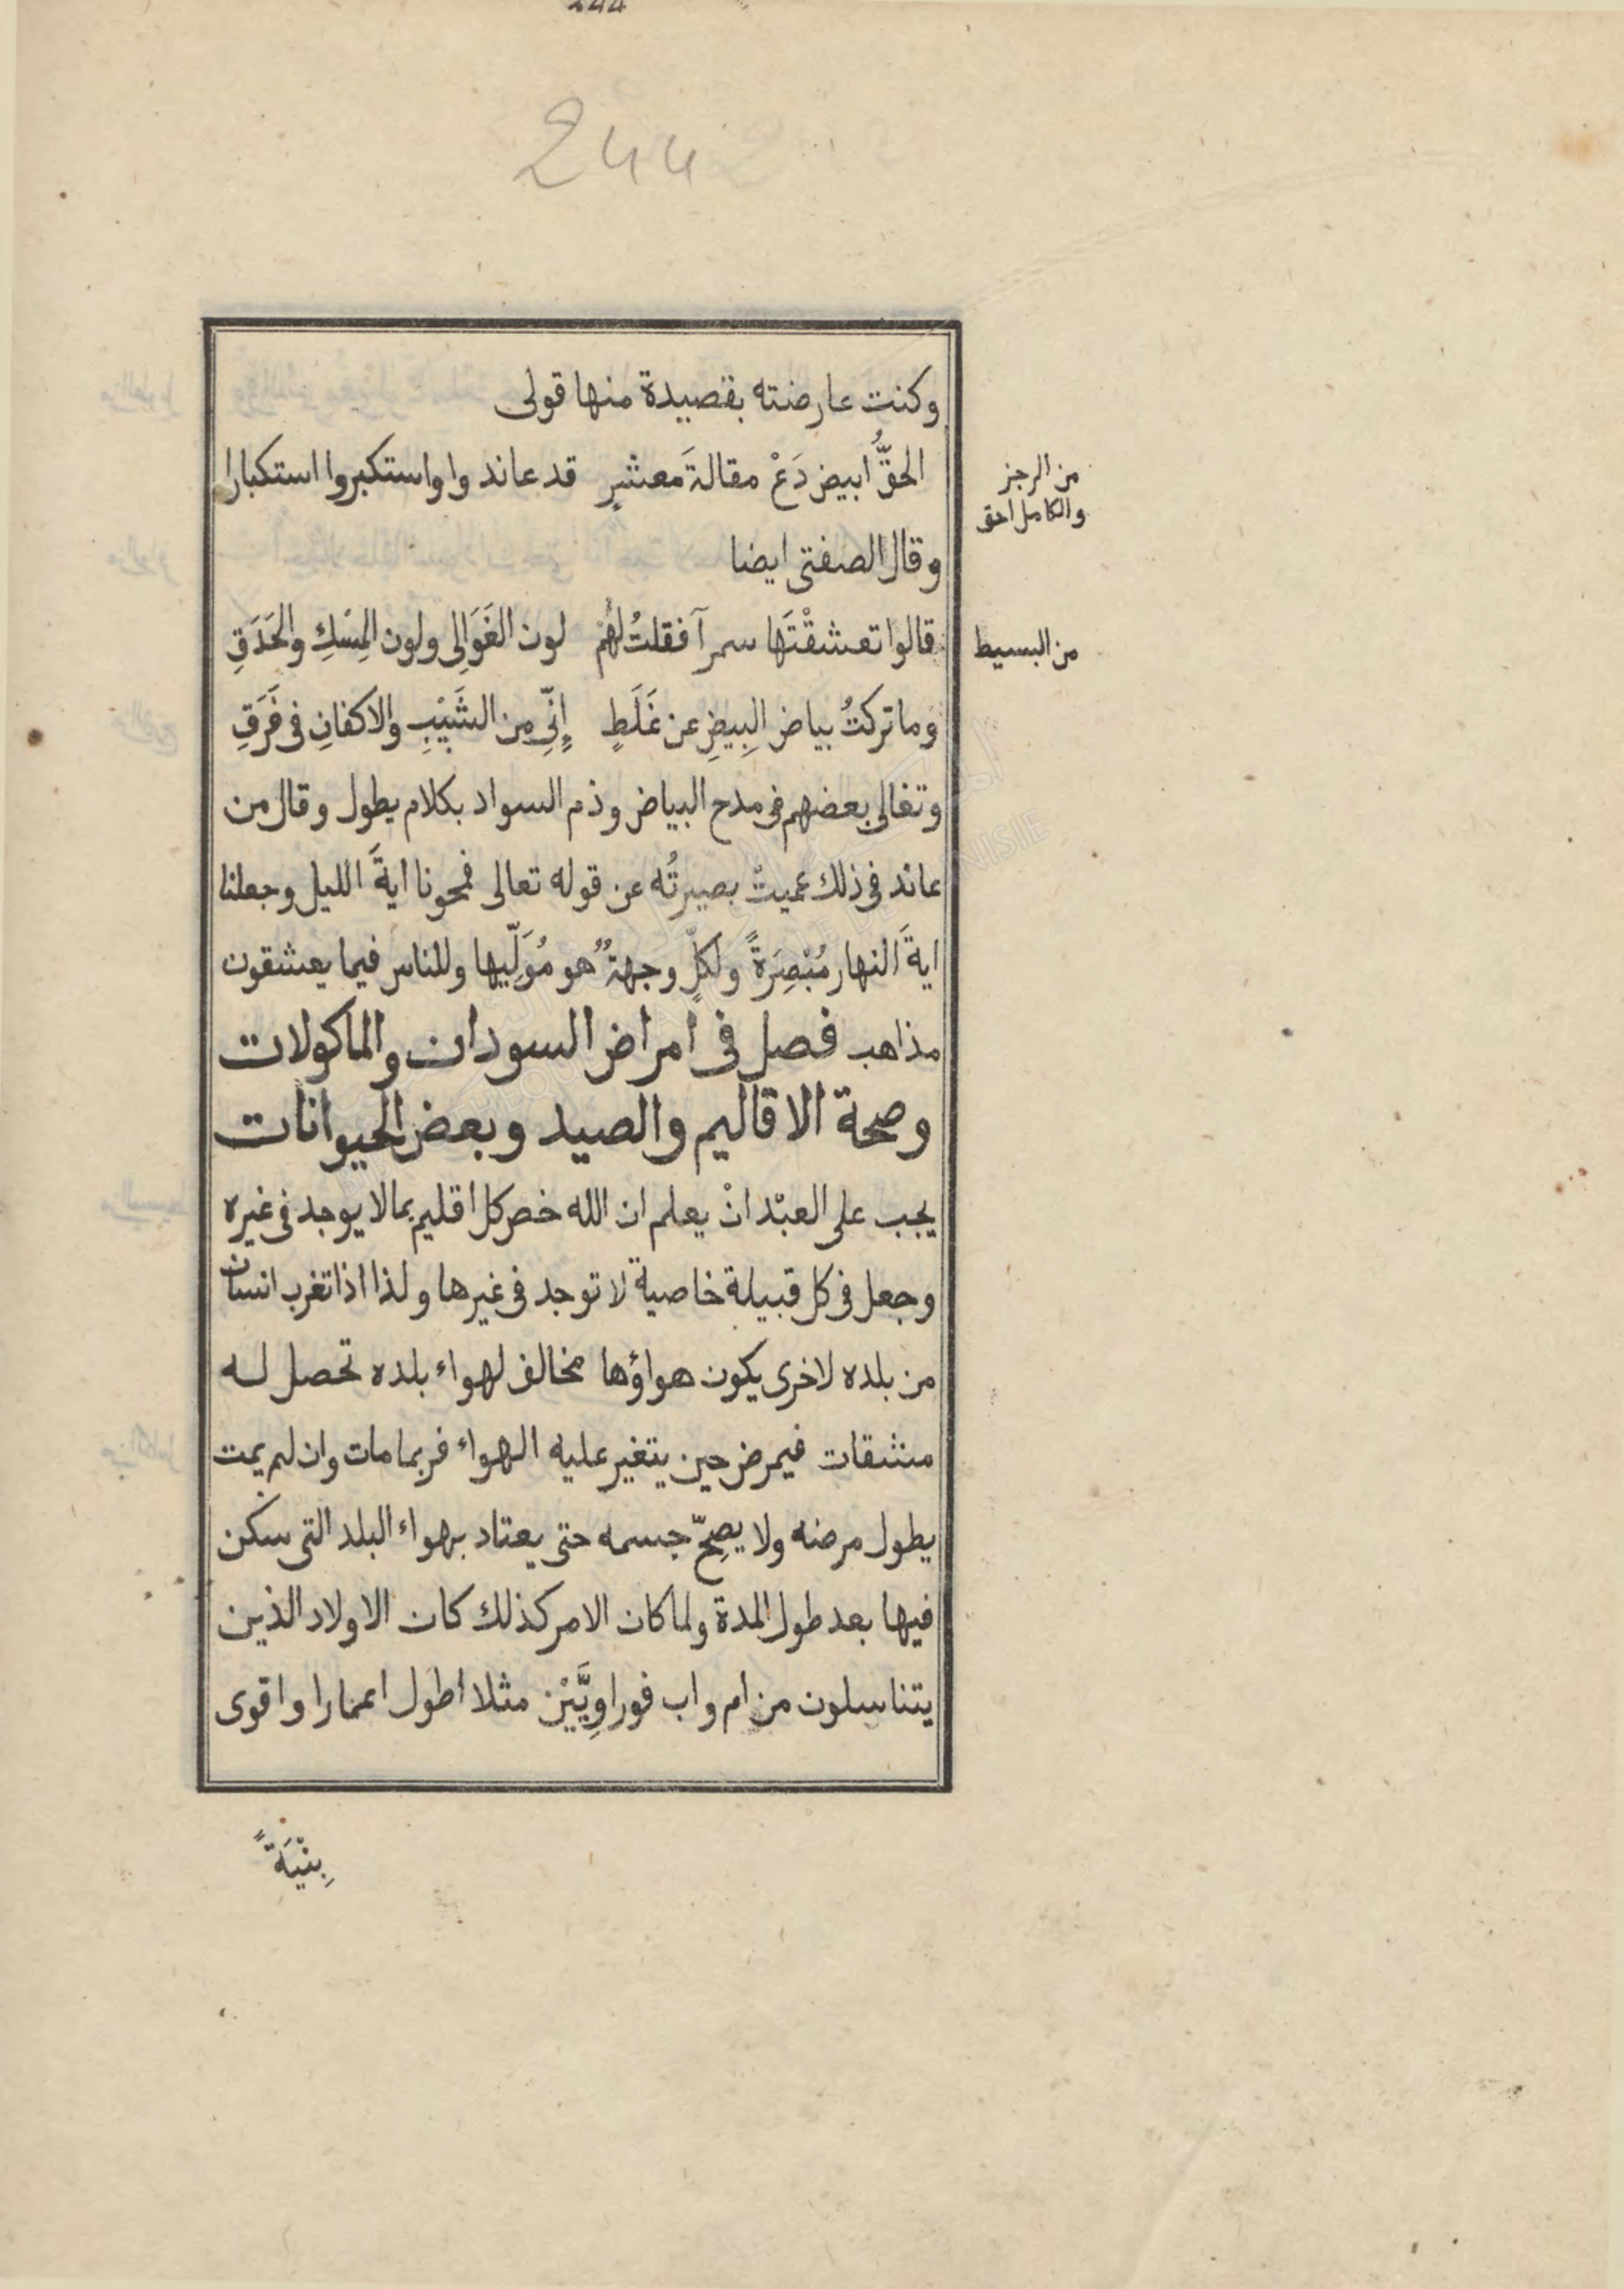 244
244
وكنت عارضته بقصيدة منها قولى
الحقُّ ابيض دَعْ مقالةَ معشرٍ قد عاندوا واستكبروا استكبارا
من الرجز
والكامل احق
وقال الصفتى ايضا
قالوا تعشقْتَها سمرآ فقلتُ لهُم لون الغَوَالِى ولون المِسْكِ والحَدَقِ
من البسيط
وما تركتُ بياض البِيضِ عن غَلَطٍ إِنِّى مِن الشَيْبِ والاكفانِ فى فَرَقِ
وتغالى بعضهم فى مدح البياض وذم السواد بكلام يطول وقال من
عاند فى ذلك عميتْ بصيرتُه عن قوله تعالى فمحونا ايةَ الليل وجعلنا
ايةَ النهار مُبْصِرَةً ولكلٍّ وجهةٌ هو مُوَلِّيها وللناس فيما يعشقون
مذاهب فصل فى امراض السودان والماكولات
وصحة الاقاليم والصيد وبعض الحيوانات
يجب على العبْد انْ يعلم ان الله خص كل اقليم بمالا يوجد فى غيره
وجعل فى كل قبيلة خاصية لا توجد فى غيرها ولذا اذا تغرب انسان
من بلده لاخرى يكون هواؤها مخالف لهواء بلده تحصل له
مشقات فيمرض حين يتغير عليه الهواء فربما مات وان لم يمت
يطول مرضه ولا يصِحّ جسمه حتى يعتاد بهواء البلد التى سكن
فيها بعد طول المدة ولما كان الامر كذلك كان الاولاد الذين
يتناسلون من ام واب فوراوِيَّيْن مثلا اطول اعمارا واقوى
بِنْيَةً